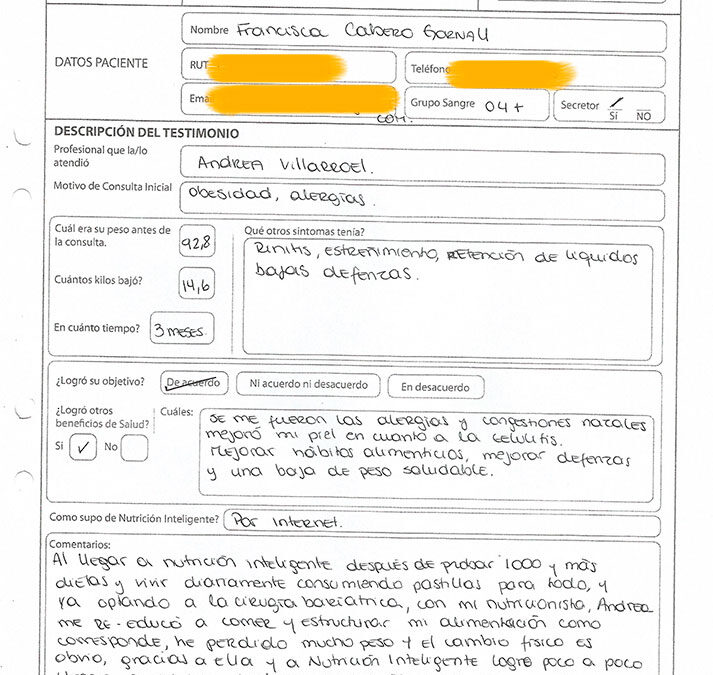 Nombre Francisca Cabero Gornall
DATOS PACIENTE
RUT
Teléfono
Ema
com.
Grupo Sangre 04+
Secretor Sí NO
DESCRIPCIÓN DEL TESTIMONIO
Profesional que la/lo atendió
Andrea Villarroel.
Motivo de Consulta Inicial
Obesidad, alergias.
Cuál era su peso antes de la consulta. 92,8
Qué otros sintomas tenía?
Rinitis, estreñimiento, retención de liquidos
bajas defenzas.
Cuántos kilos bajó? 14,6
En cuánto tiempo? 3 meses
¿Logró su objetivo? De acuerdo Ni acuerdo ni desacuerdo En desacuerdo
¿Logró otros beneficios de Salud?
Si ✓ No
Cuáles:
Se me fueron las alergias y congestiones nazales
mejoró mi piel en cuanto a la celulitis.
Mejorar hábitos alimenticios, mejorar defenzas
y una baja de peso saludable.
Como supo de Nutrición Inteligente? Por internet.
Comentarios:
Al llegar a nutrición inteligente después de probar 1000 y más
dietas y vivir diariamente consumiendo pastillas para todo, y
ya optando a la cirugía bariátrica, con mi nutricionista, Andrea
me re-educó a comer y estructurar mi alimentación como
corresponde, he perdido mucho peso y el cambio fisico es
obvio, gracias a ella y a Nutrición Inteligente logré poco a poco